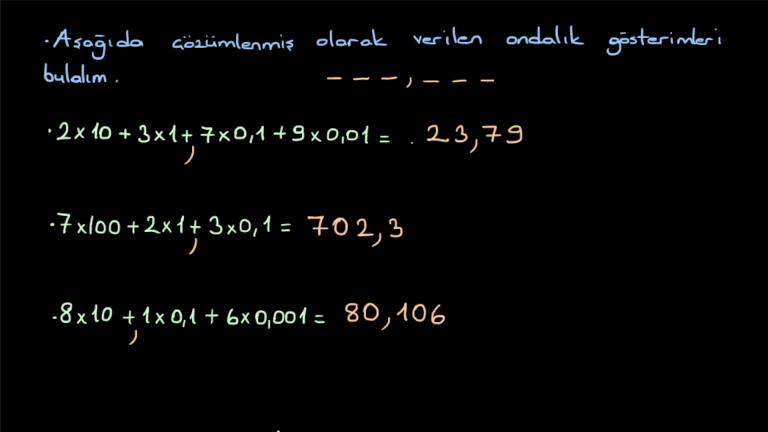 ·Aşağıda çözümlenmiş olarak verilen ondalık gösterimleri
bulalım. _ _ _ , _ _ _
·2x10 + 3x1 + 7x0,1 + 9x0,01 = . 23,79
,
·7x100 + 2x1 + 3x0,1 = 702,3
,
·8x10 + 1x0,1 + 6x0,001 = 80,106
,